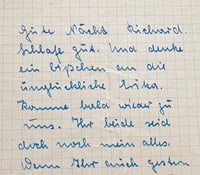 Gute Nacht Richard.
Schlafe gut. Und denke
ein bißchen an die
unglückliche Erika.
Komme bald wieder zu
uns. Ihr beide seid
doch noch mein alles.
Wenn Ihr auch gestern